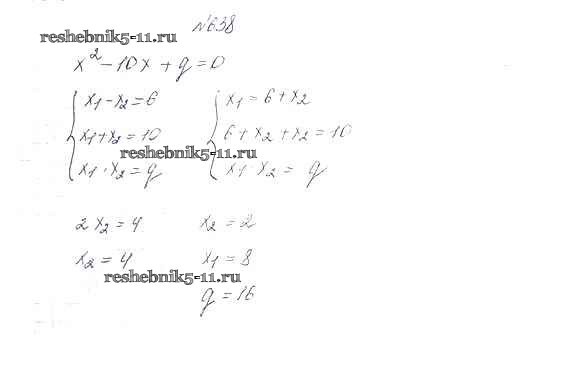 №638
reshebnik5-11.ru
x² - 10x + q = 0
x₁ - x₂ = 6
x₁ + x₂ = 10
x₁ · x₂ = q
x₁ = 6 + x₂
6 + x₂ + x₂ = 10
x₁ x₂ = q
reshebnik5-11.ru
2x₂ = 4 x₂ = 2
x₂ = 4 x₁ = 8
reshebnik5-11.ru
q = 16